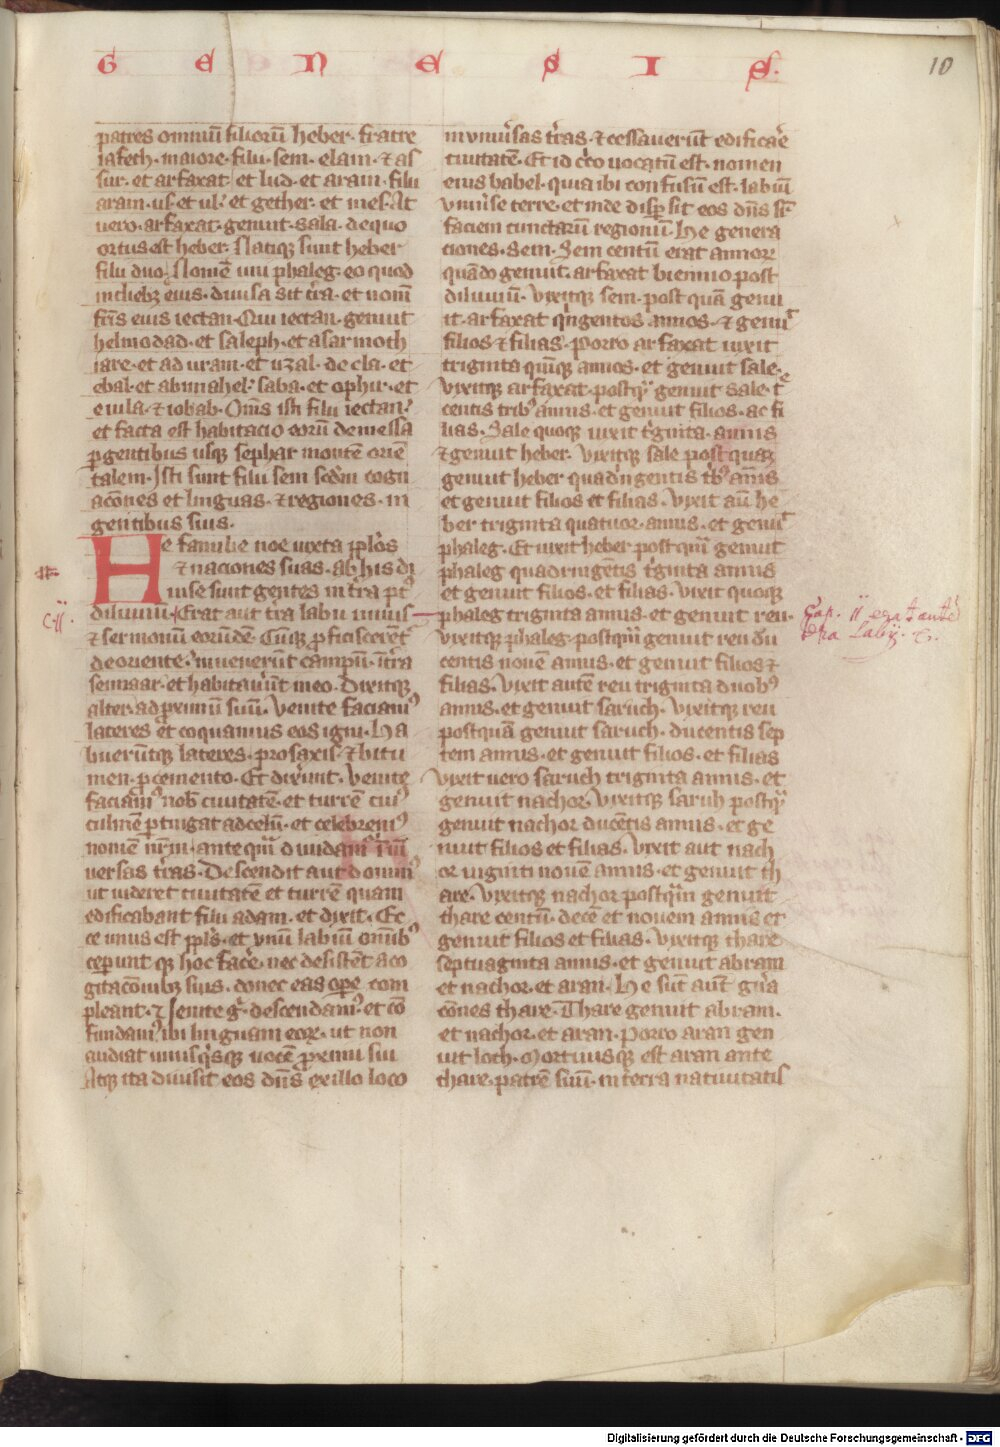 G E N E S I S.
10
patres omniũ filiorũ heber· fratre
iafeth· maiore· filii sem· elam· ⁊ as
sur· et arfaxat· et lud· et aram· filii
aram· us· et ul· et gether· et mes· At
uero· arfaxat· genuit· sala· de quo
ortus est heber· Natiq; sunt heber
filii duo· Nomẽ uni phaleg· eo quod
in dieb; eius· diuisa sit t̃ra· et nom̃
fr̃is eius iectan· Qui iectan· genuit
helmodad· et saleph· et asarmoth
iare· et aduram· et uzal· decla· et
ebal· et abimahel· saba· et ophir· et
euila· ⁊ iobab· Om̃s isti filii iectan·
et facta est habitacio eorũ de messa
ꝑgentibus usq; sephar montẽ oriẽ
talem· Isti sunt filii sem sedm̃ cogn
acõnes et linguas· ⁊ regiones· in
gentibus suis·
He familie noe iuxta ppl̃os
⁊ naciones suas· ab his di
uise sunt gentes in t̃ra pt̾
diluuiũ· Erat aut̃ t̃ra labii unius
⁊ sermonũ eorũdẽ· Cũq; ꝓficisceret̃
de oriente· inuenerũt campũ· ĩ t̃ra
sennaar· et habitauer̃t in eo· Dixitq;
alter· ad proximũ suũ· Venite faciam̾
lateres et coquamus eos igni· Ha
buerũtq; lateres· pro saxis· ⁊ bitu
men· ꝑ cemento· Et dixer̃nt· Venite
faciam̾ nob̃ ciuitatẽ· et turrẽ cui̾
culmẽ ꝑtingat ad celũ· et celebrem̾
nomẽ nr̃m· ante qm̃ diuidam̾ ĩ uni
uersas t̃ras· Descendit aut̃ domin̾
ut uideret ciuitatẽ et turrẽ quam
edificabant filii adam· et dixit· Ec
ce unus est ppl̃s· et unũ labiũ omib̾
ceperunt q; hoc facẽ· nec desistẽt a co
gitacõnib; suis· donec eas ope com
pleant· Venite g̃· descendam̾· et cõ
fundam̾ ibi linguam eoꝝ· ut non
audiat unusq̾sq; uocẽ proximi sui
Atq; ita diuisit eos dñs ex illo loco
in uniũsas t̃ras· ⁊ cessauerũt edificar̃e
ciuitatẽ· Et id c̾co uocatũ est· nomen
eius babel· quia ibi confusũ est· labiũ
uniũse terre· et inde dispsit eos dñs sr̃
faciem cunctarũ regionũ· He genera
ciones· Sem· Sem centũ erat annoꝝ
quãdo genuit· arfaxat biennio post
diluuiũ· Vixitq; sem· post quã genu
it· arfaxat qñgentos annos· ⁊ genuĩt
filios ⁊ filias· Porro arfaxat uixit
triginta quinq; annos· et genuit sale·
Vixitq; arfaxat· postq̃ genuit sale· t̾e
centis trib̾ annis· et genuit filios· ac fi
lias· Sale quoq; uixit t̾ginta· annis
⁊ genuit heber· Vixitq; sale postquaʒ
genuit heber quadrigentis t̾b̾ ann̄is
et genuit filios et filias· Vixit aũ he
ber triginta quatuor· annis· et genuĩt
phaleg· Et uixit heber postqm̃ genuit
phaleg quadringẽtis t̾ginta annis
et genuit filios· et filias· Vixit quoq;
phaleg triginta annis· et genuit reu·
Vixitq; phaleg· postqm̃ genuit reu du
centis nouẽ annis· et genuit filios ⁊
filias· Vixit autẽ reu triginta duob̾
annis· et genuit saruch· Vixitq; reu
postquã genuit saruch· ducentis sep
tem annis· et genuit filios· et filias
Vixit uero saruch triginta annis· et
genuit nachor· Vixitq; saruh postq̃
genuit nachor ducẽtis annis· et ge
nuit filios et filias· Vixit aut nach
or uiginti nouẽ annis· et genuit th
are· Vixitq; nachor postqm̃ genuit
thare centũ· decẽ et nouem annis et
genuit filios et filias· Vixitq; thare
septuaginta annis· et genuit abram
et nachor· et aran· He sũt aut̃ gñ̃a
cõnes thare· Thare genuit abram·
et nachor· et aran· Porro aran gen
uit loth· Mortuusq; est aran ante
thare· patrẽ suũ· in terra natiuitatis
C·11·
Cap. 11 erat autẽ
t̃ra Labij. &.
Digitalisierung gefördert durch die Deutsche Forschungsgemeinschaft - DFG